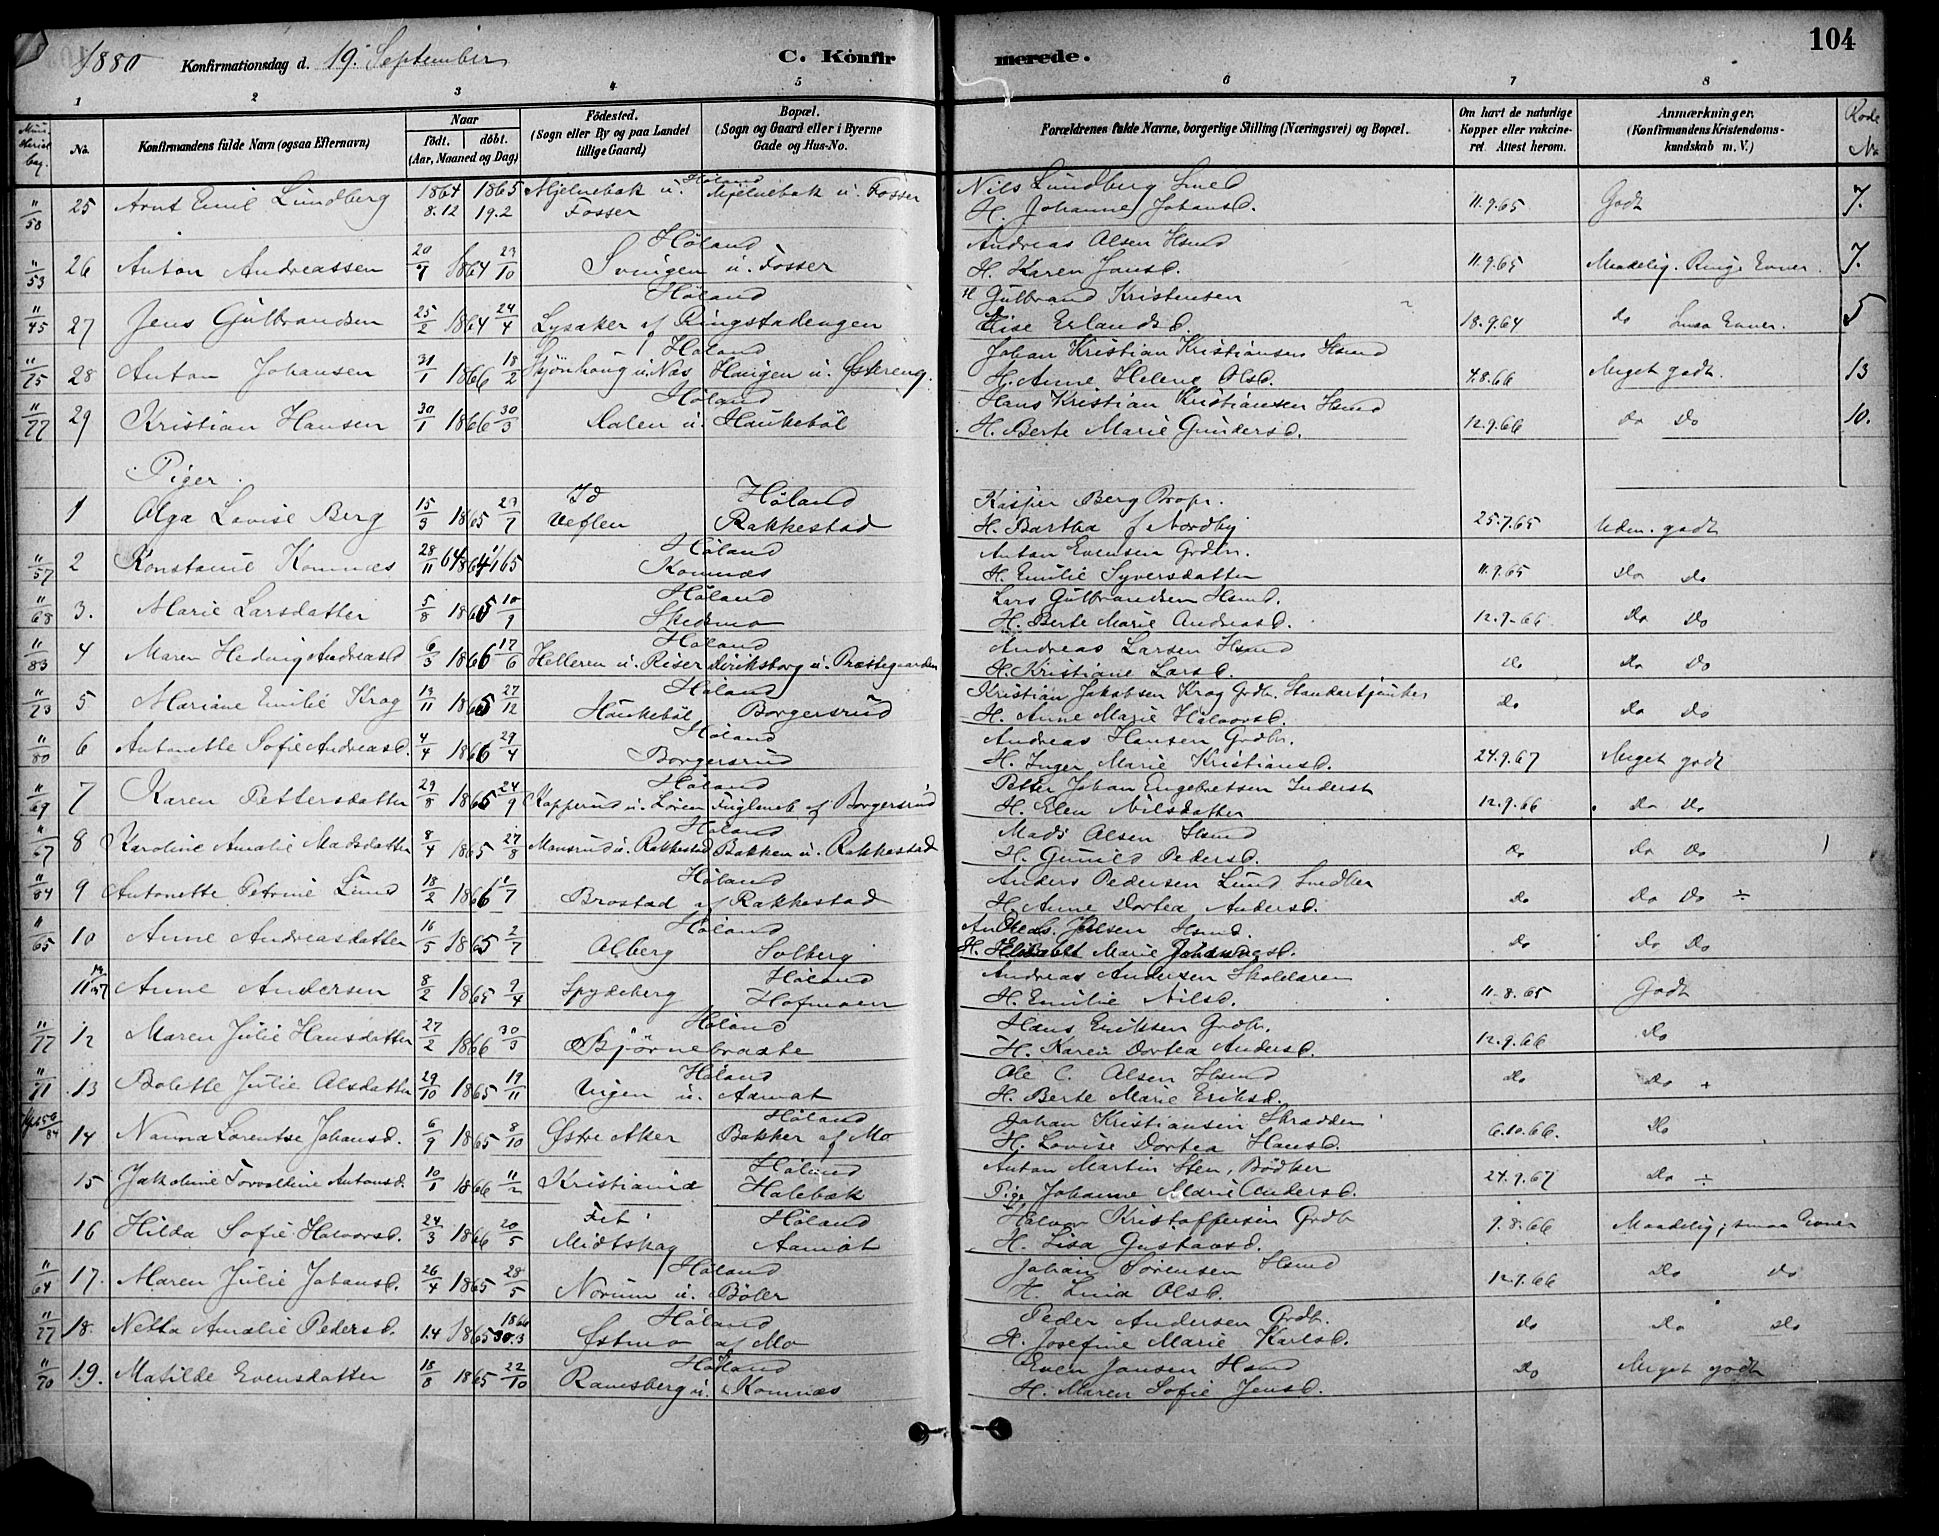 1880 Konfirmationsdag d. 19. September C. Konfirmerede. 104
1 2 3 4 5 6 7 8
No.
Konfirmandens fulde Navn (ogsaa Efternavn)
Naar
födt. döbt.
(Aar, Maaned og Dag)
Födested.
(Sogn eller By og paa Landet
tillige Gaard)
Bopæl.
(Sogn og Gaard eller i Byerne
Gade og Hus-No.
Forældrenes fulde Navne, borgerlige Stilling (Næringsvei) og Bopæl.
Om havt de naturlige
Kopper eller vakcine-
ret. Attest herom.
Anmærkninger.
(Konfirmandens Kristendoms-
kundskab m. V.)
Rode
No
11/58 25 Arnt Emil Lundberg 1864 8.12 1865 19.2 Mjelnebak u. Fosser Høland Mjelnebak u. Fosser
Nils Lundberg Smed
H. Johanne Johansd. 11.9.65 Godt 7.
11/53 26 Anton Andreassen 20/7 1864 23/10 Høland Svingen u. Fosser
Andreas Olsen Hsmd
H. Karen Jansd. 11.9.65 Maadelig. Ringe Evner. 7.
11/45 27 Jens Gulbrandsen 25/2 1864 24/4 Høland Lysaker af Ringstadengen
Gulbrand Kristensen
Lise Erlandsd. 18.9.64 do Smaa Evner. 5
11/75 28 Anton Johansen 31/1 1866 18/2 Skjønhaug u. Næs Høland Haugen u. Østereng.
Johan Kristian Kristiansen Hsmd
H. Anne Helene Olsd. 4.8.66 Meget godt. 13
11/77 29 Kristian Hansen 30/1 1866 30/3 Høland Aalen u. Haukebøl
Hans Kristian Kristiansen Hsmd
H. Berte Marie Gundersd. 12.9.66 do do 10.
Piger.
1 Olga Lovise Berg 15/3 1865 23/7 Id Veflen Høland Rakkestad
Kasper Berg Propr.
H. Bartha f. Nordby 25.7.65 Udm. godt
11/57 2 Konstanse Komnæs 28/11 64 1/1 65 Høland Komnæs
Anton Evensen Grdbr.
H. Emilie Syversdatter 11.9.65 Do do
11/68 3. Marie Larsdatter 5/8 1865 10/9 Høland Skedsmo
Lars Gulbrandsen Hsmd.
H. Berte Marie Andreasd. 12.9.66 Do Do
11/83 4 Maren Hedvig Andreasd 6/3 1866 17/6 Helleren u. Riser Høland Diriksborg u. Præstegaarden
Andreas Larsen Hsmd
H. Kristiane Larsd. Do Do Do
11/73 5 Mariane Emilie Krog 19/11 1865 27/12 Haukebøl Høland Borgersrud
Kristian Jakobsen Krog Grdbr. Standartjunker
H. Anne Marie Halvorsd. Do Do Do
11/80 6 Antonette Sofie Andreasd. 4/4 1866 29/4 Høland Borgersrud
Andreas Hansen Grdbr.
H. Inger Marie Kristiansd. 24.9.67 Meget godt
11/69 7 Karen Pettersdatter 29/8 1865 24/9 Kopperud u. Løren Høland Fugleneb af Borgersrud
Petter Johan Engebretsen Inderst
H. Elen Nilsdatter 12.9.66 Do Do
8 Karoline Amalie Madsdatter 8/4 1865 27/8 Mansrud u. Rakkestad Høland Bakken u. Rakkestad
Mads Olsen Hsmd
H. Gunild Pedersd. Do Do Do
9 Antonette Petrine Lund 18/2 1866 1/7 Høland Brostad af Rakkestad
Anders Pedersen Lund Snedker
H. Anne Dortea Andersd. Do Do Do ÷
11/65 10 Anne Andreasdatter 16/5 1865 2/7 Alberg Høland Solberg
Andreas Julsen Hsmd.
H. Elisabeth Marie Johannesd. Do Do Do
11 Anne Andersen 8/2 1865 2/4 Spydeberg Høland Hofmoen
Andreas Andersen Skolelærer
H. Emilie Nilsd. 11.8.65 Godt
11/77 12 Maren Julie Hansdatter 27/2 1866 30/3 Høland Bjørnebraate
Hans Eriksen Grdbr.
H. Karen Dortea Andersd. 12.9.66 Do
11/71 13 Bolette Julie Olsdatter 29/10 1865 19/11 Høland Vigen u. Aamot
Ole C. Olsen Hsmd
H. Berte Marie Eriksd. Do Do +
14 Nanna Lorentse Johansd. 6/9 1865 8/10 Østre Aker Høland Bakker af Mo
Johan Kristiansen Skrædder
H. Lovise Dortea Hansd. 6.10.66. Do
15 Jakobine Torvaldine Antonsd. 10/1 1866 11/2 Kristiania Høland Halebæk
Anton Martin Sten, Bødker
Pige Johanne Marie Andersd. 24.9.67 Do ÷
16 Hilda Sofie Halvorsd. 24/3 1866 20/5 Fet Midtskog Høland Aamot
Halvor Kristoffersen Grdbr
H. Lisa Gustavsd. 9.8.66 Maadelig, smaa Evner
11/64 17. Maren Julie Johansd. 26/4 1865 28/5 Høland Norum u. Bøler
Johan Sørensen Hsmd
H. Lina Olsd. 12.9.66 Do Do
11/77 18. Netta Amalie Pedersd. 1.4 1865 1866 30.3 Høland Østmo af Mo
Peder Andersen Grdbr.
H. Josefine Marie Karlsd. Do Do Do
11/70 19. Matilde Evensdatter 18/8 1865 22/10 Høland Ramsberg u. Komnæs
Even Jansen Hsmd
H. Maren Sofie Jensd. Do Meget godt